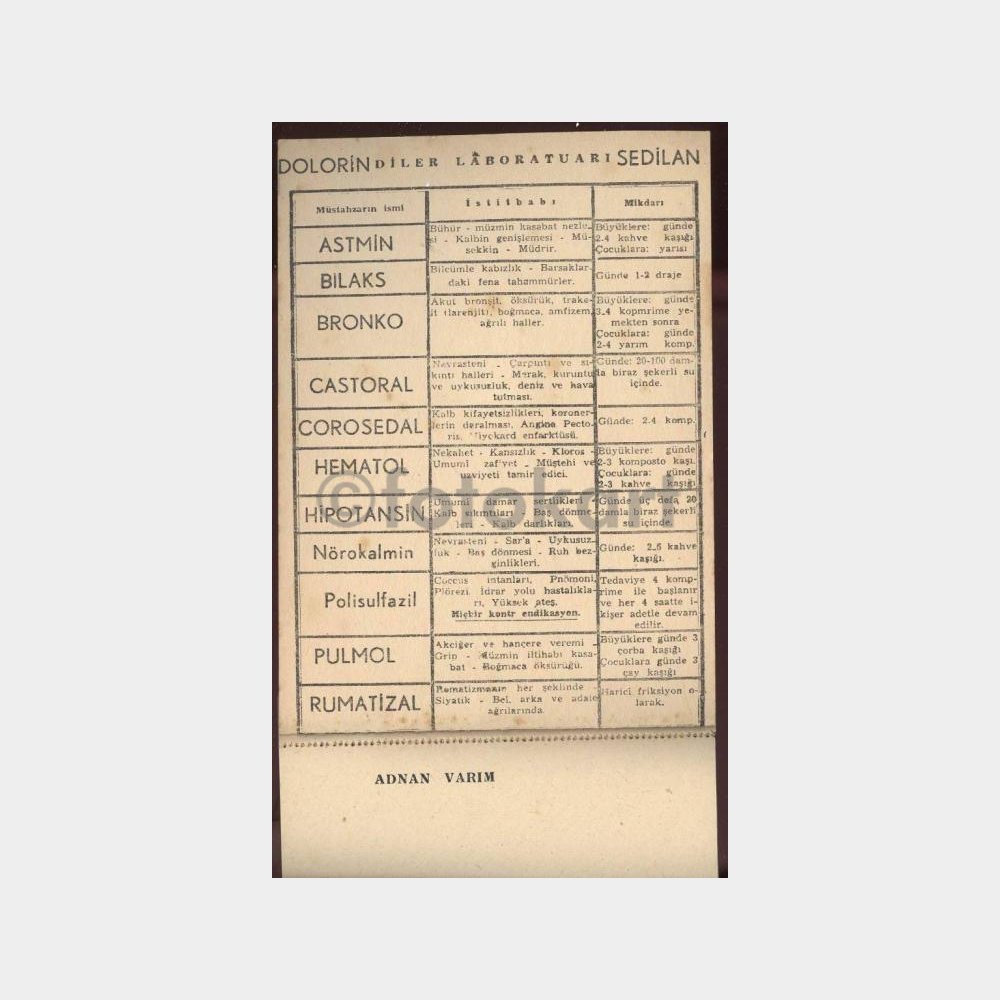 DOLORİN DİLER LÂBORATUARI SEDİLAN
Müstahzarın ismi İstitbabı Mikdarı
ASTMİN
Bühür - müzmin kasabat nezle-
si - Kalbin genişlemesi - Mü-
sekkin - Müdrir.
Büyüklere: günde
2.4 kahve kaşığı
Çocuklara: yarısı
BILAKS
Bilcümle kabızlık - Barsaklar-
daki fena tahammürler.
Günde 1-2 draje
BRONKO
Akut bronşit, öksürük, trake-
it (larenjit), boğmaca, amfizem,
ağrılı haller.
Büyüklere: günde
3.4 kopmrime ye-
mekten sonra
Çocuklara: günde
2-4 yarım komp.
CASTORAL
Nevrasteni - Çarpıntı ve sı-
kıntı halleri - Merak, kuruntu
ve uykusuzluk, deniz ve hava
tutması.
Günde: 20-100 dam-
la biraz şekerli su
içinde.
COROSEDAL
Kalb kifayetsizlikleri, koroner-
lerin daralması, Angine Pecto-
ris, Miyokard enfarktüsü.
Günde: 2.4 komp.
HEMATOL
Nekahet - Kansızlık - Kloros -
Umumi zafiyet - Müştehi ve
uzviyeti tamir edici.
Büyüklere: günde
2-3 komposto kaşı.
Çocuklara: günde
2-3 kahve kaşığı
HİPOTANSİN
Umumi damar sertlikleri -
Kalb sıkıntıları - Baş dönme-
leri - Kalb darlıkları.
Günde üç defa 20
damla biraz şekerli
su içinde.
Nörokalmin
Nevrasteni - Sar'a - Uykusuz-
luk - Baş dönmesi - Ruh bez-
ginlikleri.
Günde: 2.5 kahve
kaşığı.
Polisulfazil
Coccus intanları, Pnömoni,
Plörezi. İdrar yolu hastalıkla-
rı, Yüksek ateş.
Hiçbir kontr endikasyon.
Tedaviye 4 komp-
rime ile başlanır
ve her 4 saatte i-
kişer adetle devam
edilir.
PULMOL
Akciğer ve hançere veremi -
Grin - Müzmin iltihabı kasa-
bat - Boğmaca öksürüğü.
Büyüklere günde 3
çorba kaşığı
Çocuklara günde 3
çay kaşığı
RUMATİZAL
Romatizmanın her şeklinde -
Siyatik - Bel, arka ve adale
ağrılarında.
Harici friksiyon o-
larak.
ADNAN VARIM